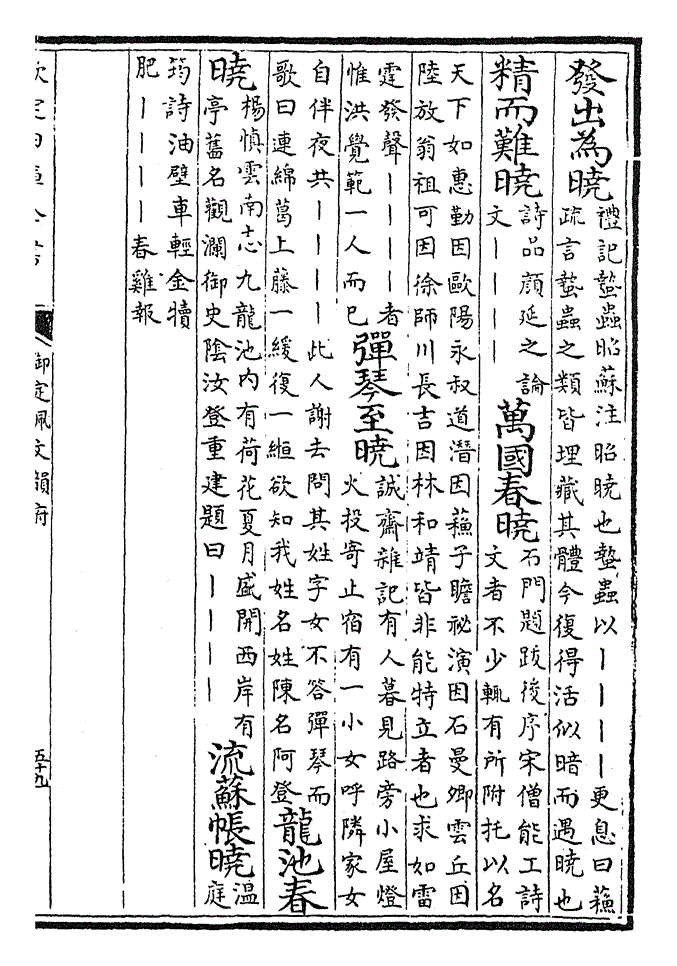 發出為曉
禮記蟄蟲昭蘇注昭曉也蟄蟲以丨丨丨丨更息曰蘓
疏言蟄蟲之類皆埋藏其體今復得活似暗而遇曉也
精而難曉
詩品顔延之論
文丨丨丨丨
萬國春曉
石門題跋後序宋僧能工詩
文者不少輒有所附托以名
天下如惠勤因歐陽永叔道潛因蘓子瞻祕演因石曼卿雲丘因
陸放翁祖可因徐師川長吉因林和靖皆非能特立者也求如雷
霆發聲丨丨丨丨者
惟洪覺範一人而已
彈琴至曉
誠齋雜記有人暮見路旁小屋燈
火投寄止宿有一小女呼隣家女
自伴夜共丨丨丨丨此人謝去問其姓字女不答彈琴而
歌曰連綿葛上藤一緩復一絙欲知我姓名姓陳名阿登
龍池春
曉
楊慎雲南志九龍池内有荷花夏月盛開西岸有
亭舊名觀瀾御史陰汝登重建題曰丨丨丨丨
流蘇帳曉
溫
庭
筠詩油壁車輕金犢
肥丨丨丨丨春雞報
欽定四庫全書
御定佩文韻府
五十九